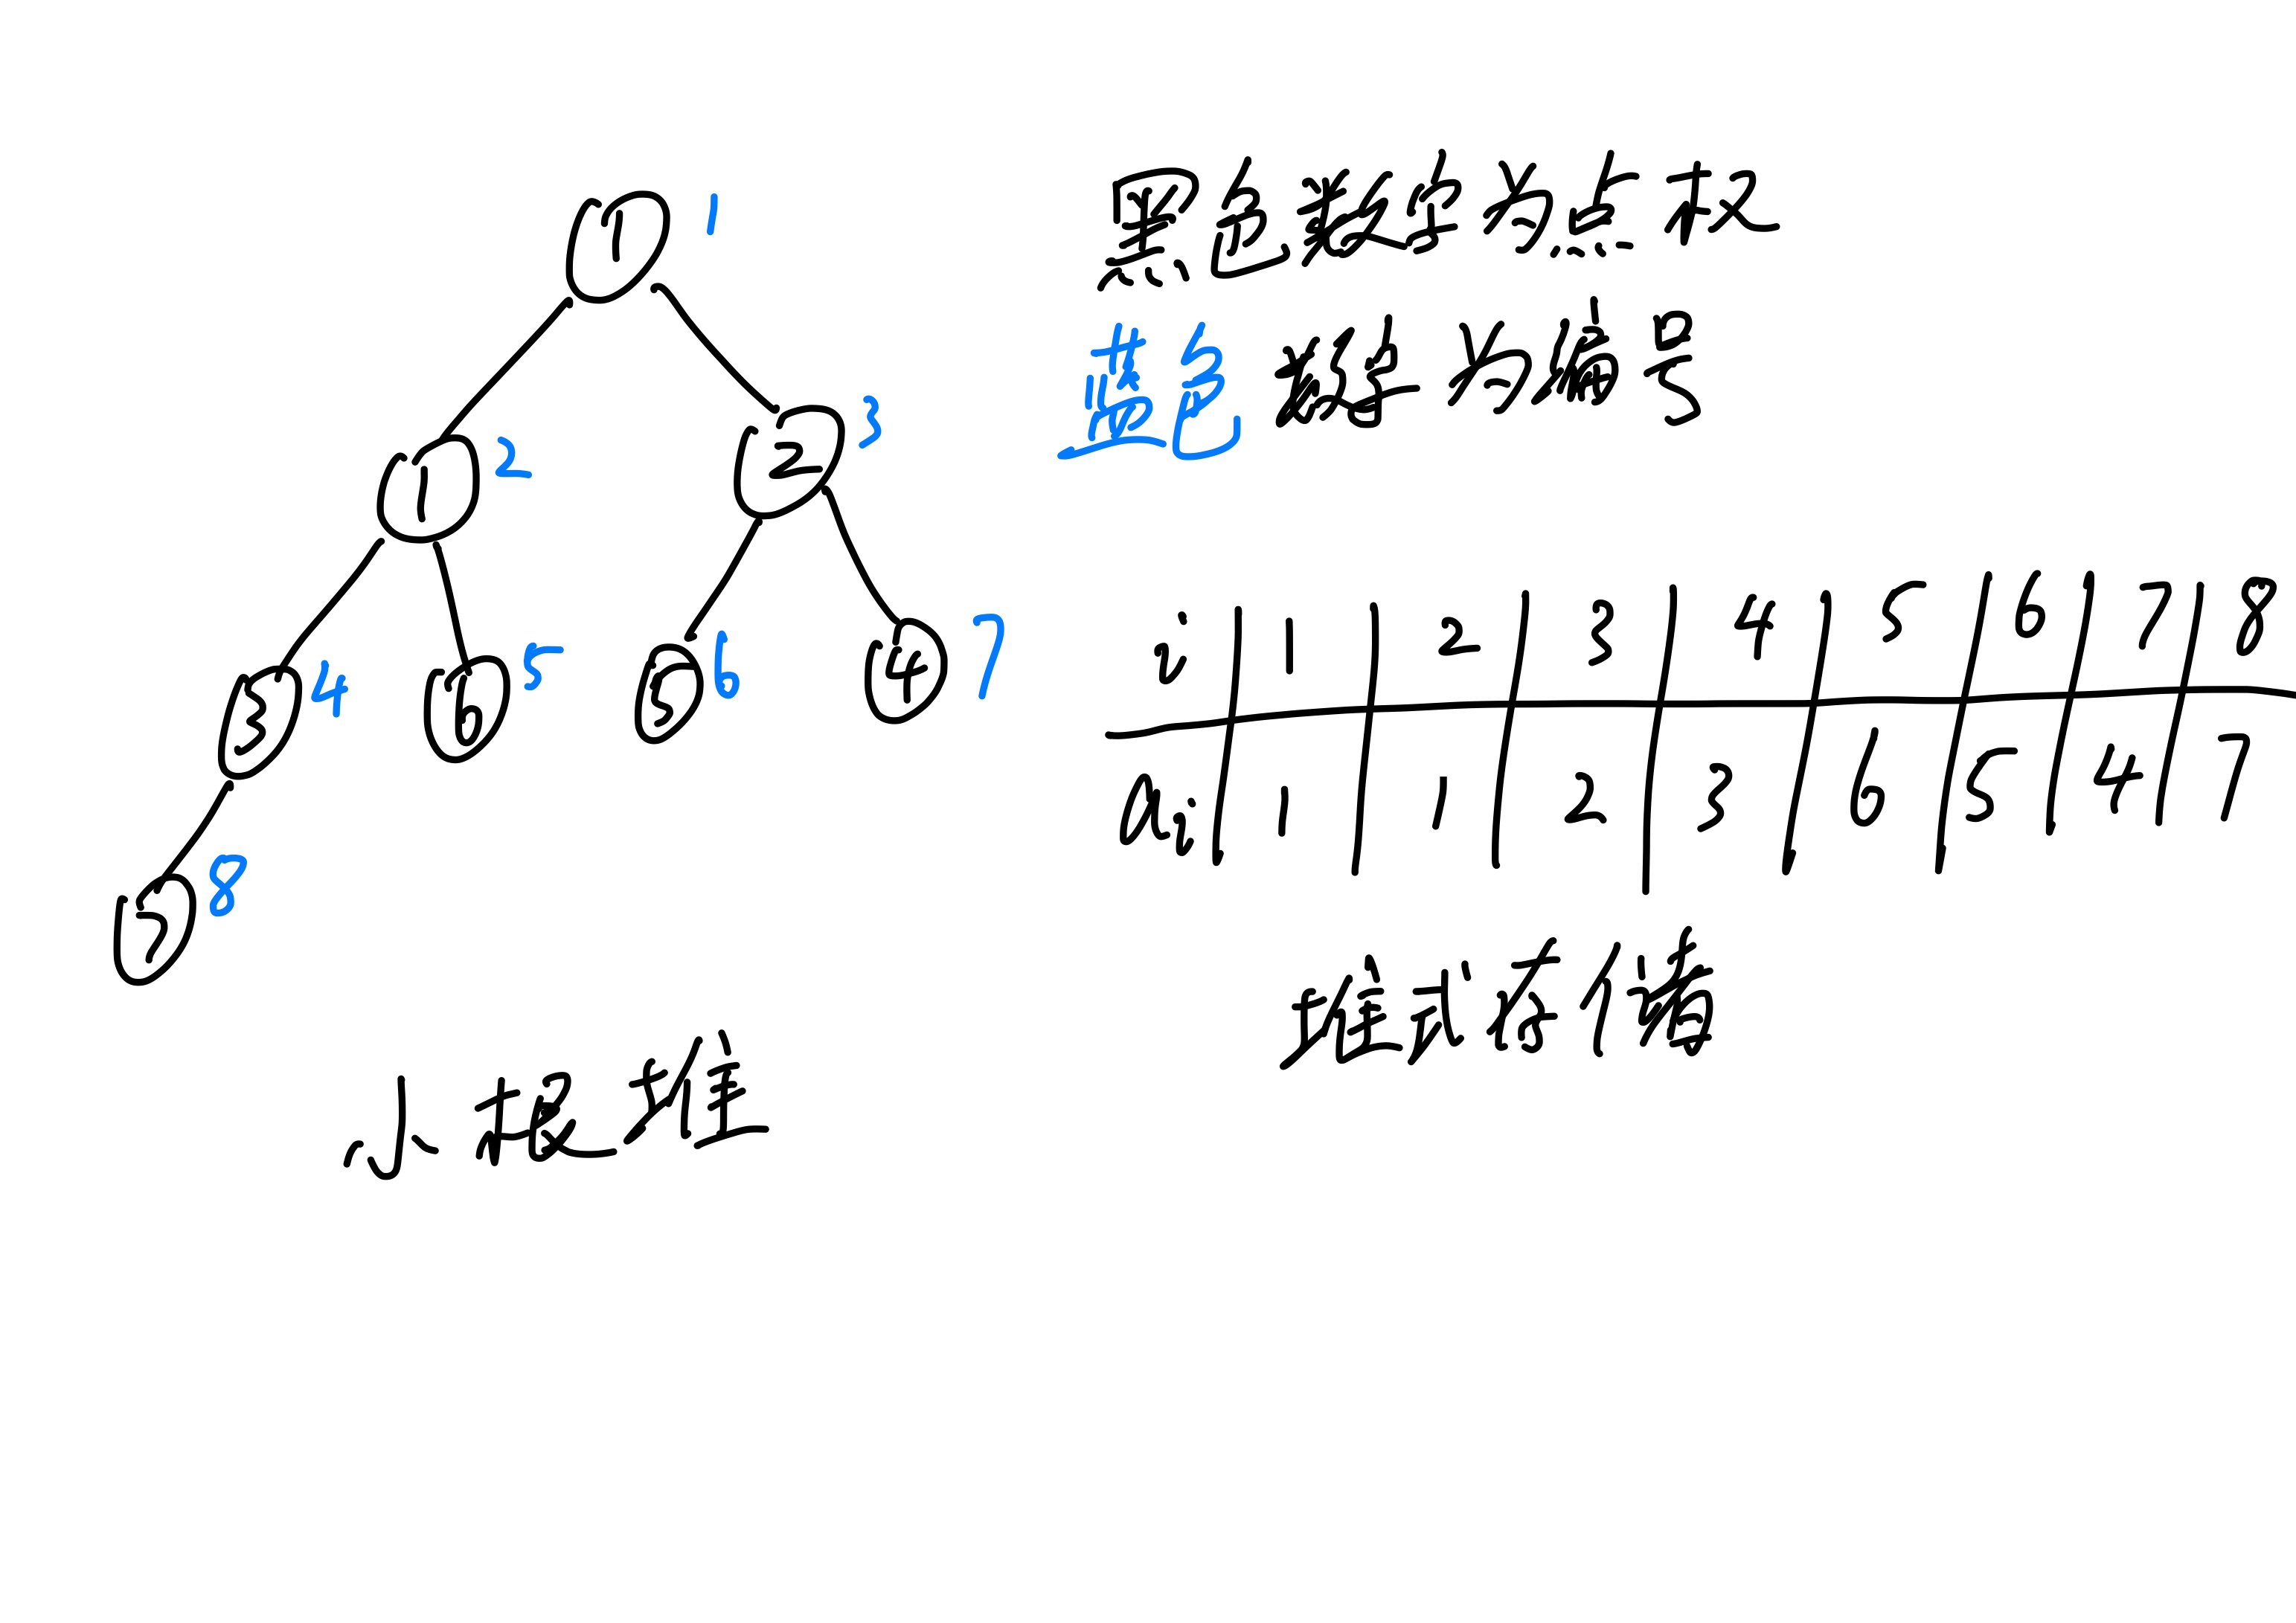 1 1
1 2 2 3
3 4 6 5 5 6 4 7
7 8
小根堆
黑色数字为点权
蓝色数字为编号
i 1 2 3 4 5 6 7 8
ai 1 1 2 3 6 5 4 7
堆式存储